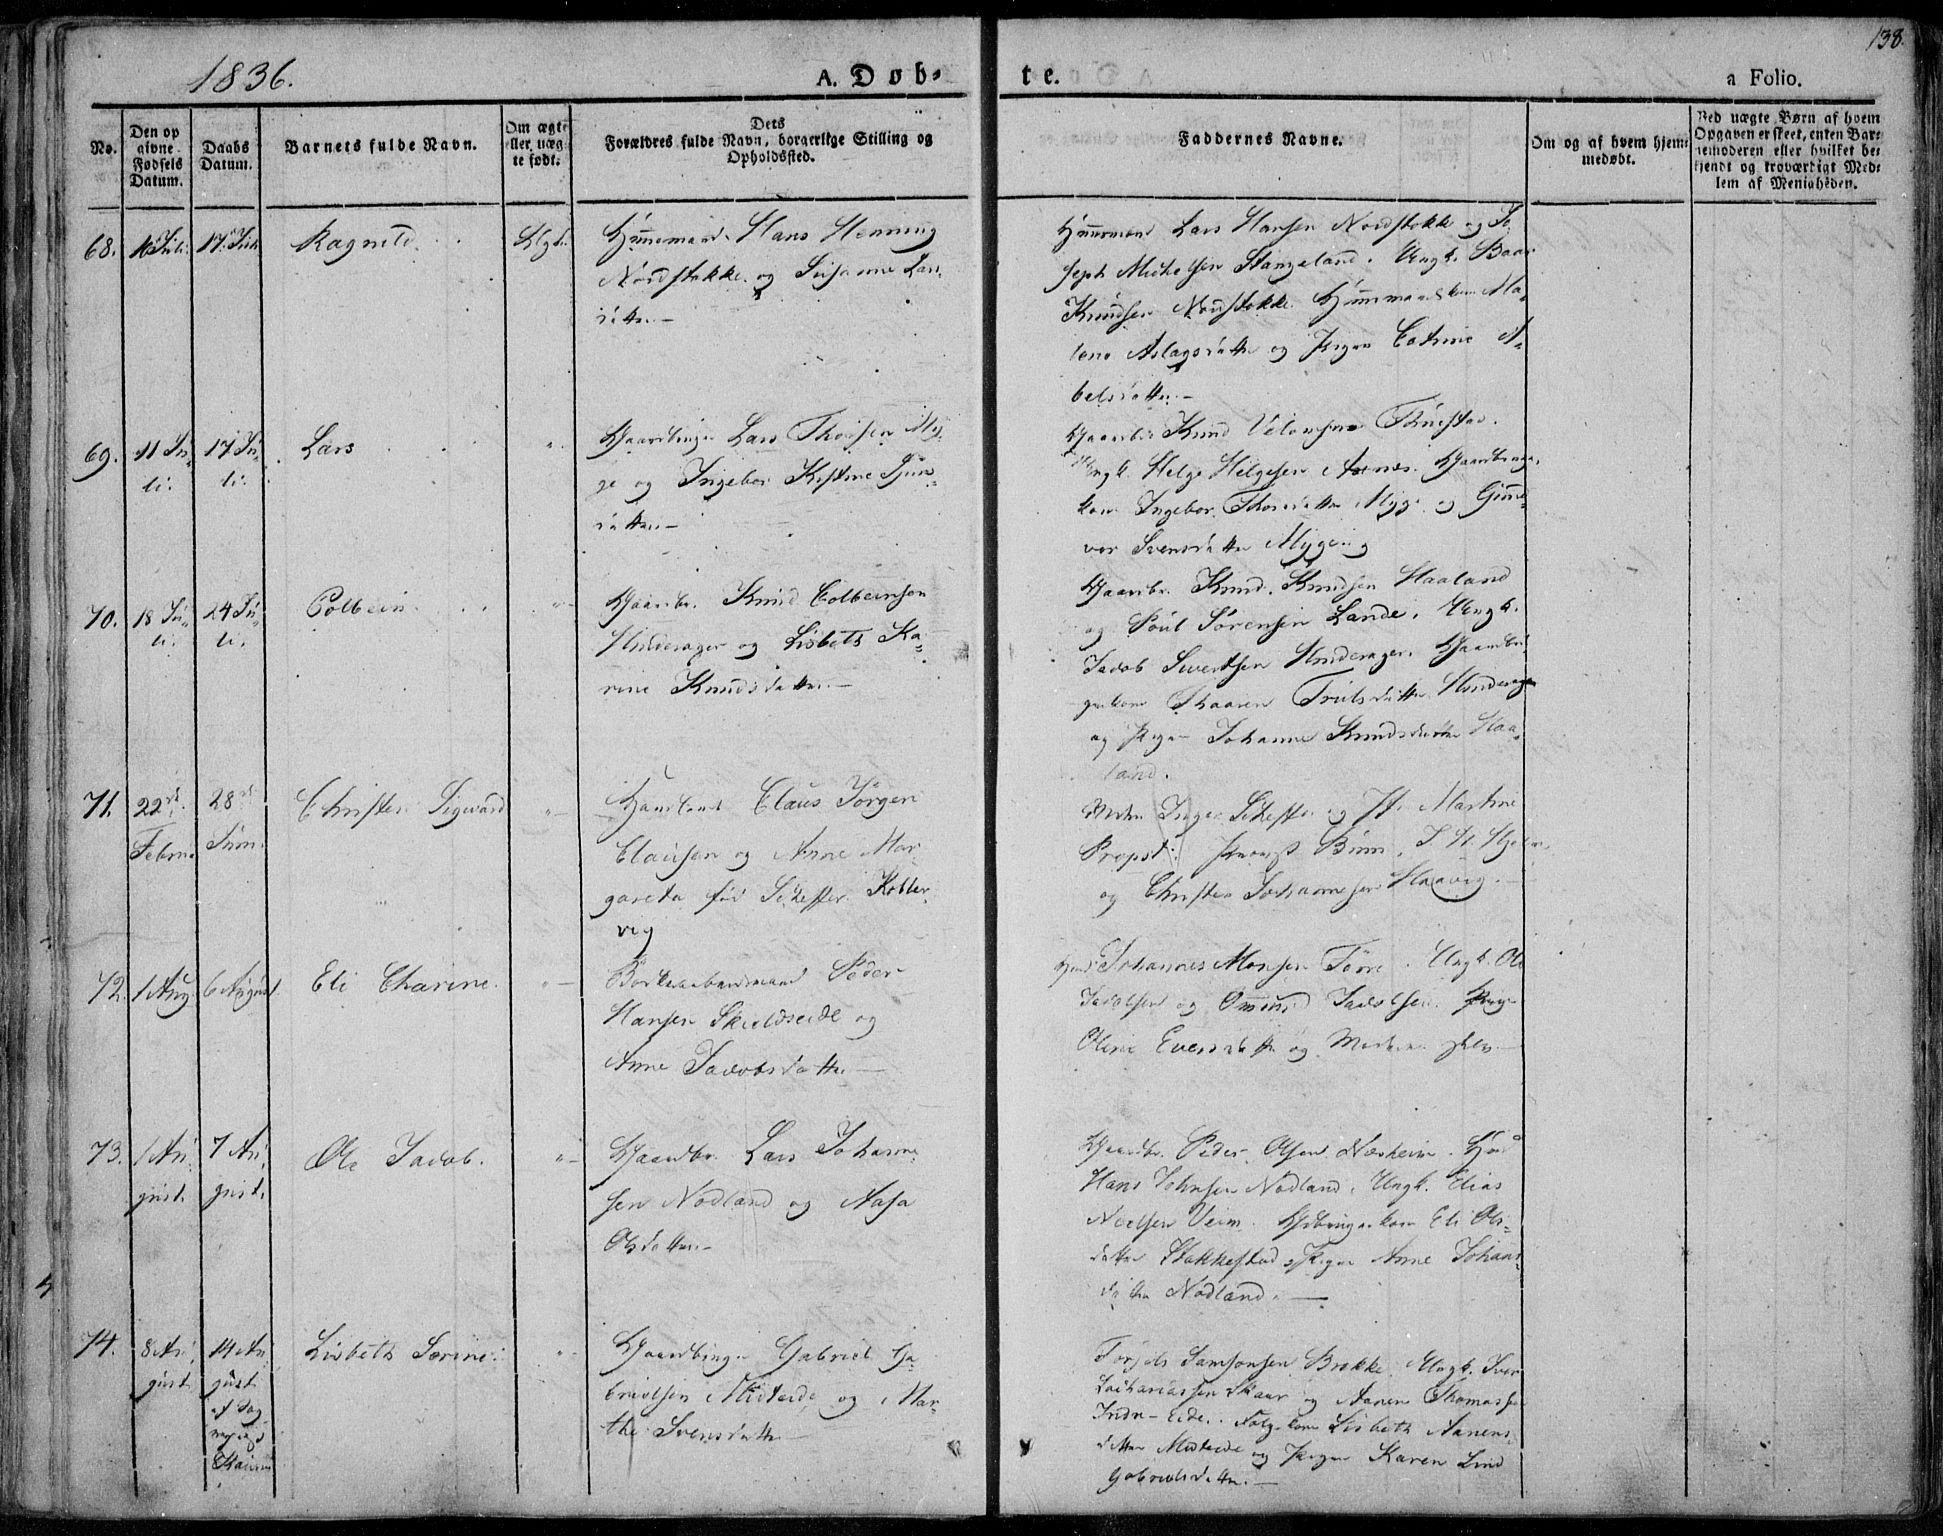 138.
1836.
A. Døb-
te.
a Folio.
No.
Den op
givne
Fødsels
Datum.
Daabs
Datum.
Barnets fulde Navn.
Om ægte
eller uæg
te født.
Dets
Forældres fulde Navn, borgerlige Stilling og
Opholdssted.
Faddernes Navne.
Om og af hvem hjem-
medøbt.
Ved uægte Børn af hvem
Opgaven er skeet, enten Bar-
nemoderen eller hvilket be-
kjendt og troværdigt Med-
lem af Menigheden.
68.
16 Juli
17 Juli
Ragnild
Ægte
Huusmand Hans Henning
Nordstokke og Susanne Lars-
datter.
Huusmand Lars Hansen Nordstokke og Jo-
seph Michelsen Stangeland. Ungk. Baar
Knudsen Nordstokke Huusmandskone Ma-
lene Aslagsdatter og Pigen Catrine A-
belsdatter.
69.
11 Ju-
li.
17 Ju-
li.
Lars
Gaardbruger Lars Thorsen My-
ge og Ingebor Kistine
datter.
Gaardbr Knud
Ungk. Helge Helgesen Aarnes. Gaardbruger-
kone Ingebor Thorsdatter Myge og Gun-
vor Svensdatter Myge
70.
18 Ju-
li.
24 Ju-
li.
Colbein
Gaardbr. Knud Colbeinsen
Hinderager og Lisbeth Ka-
rine Knudsdatter.
Gaardbr. Knud Knudsen Haaland
og Poul Sørensen Lande. Ungk.
Jacob Sivertsen Hinderager. Gaardbru-
gerkone Thaaren Trulsdatter Hinderager
og Pigen Johanne Knudsdatter Haa-
land.
71.
22de
Febru.
28de
Juni
Christen Sigvard
Claus Jørgen
Clausen og Anne Mar-
gareta fød Scheffer Kobber-
vig
Inger Scheffer og Martine
Propst. J. H. Hjelm
og Christen Johannesen Haavig.
72.
1 Aug
6 August
Eli Charine.
Peder
Hansen Skieldseide og
Anne Jacobsdatter
Johannes Monsen Førre. Ungk. Ole
Jacobsen og Omund Jacobsen. Pige
Oline Eversdatter og
73.
1 Au-
gust.
7 Au-
gust.
Ole Jacob.
Gaardbr. Lars Johanne-
sen Nodland og Aasa
Olsdatter.
Gaardbr. Peder Olsen Næsheim.
Hans Johnsen Nodland. Ungk. Elias
Noelsen Veim. Gdbrugerkone Eli Ols-
datter Stakkestad Pigen Anne Johans-
datter Nodland.
74.
8 Au-
gust
14 Au-
gust
Lisbeth Serine.
Gaardbruger Gabriel Ga-
brielsen Mideide og Mar-
the Svensdatter
Torjels Samsonsen Brekke. Ungk. Iver
Zachariassen Skaar og Aanen Thomassen
Indre-Eide. Lisbeth Aanens-
datter Mideide og Pigen Karen Lind
Gabrielsdatter.